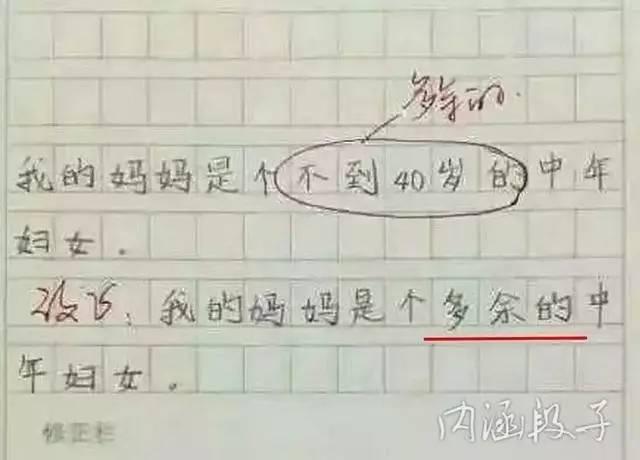 多余的.
我的妈妈是个不到40岁的中年
妇女.
改正:我的妈妈是个多余的中
年妇女.
修正栏
内涵段子